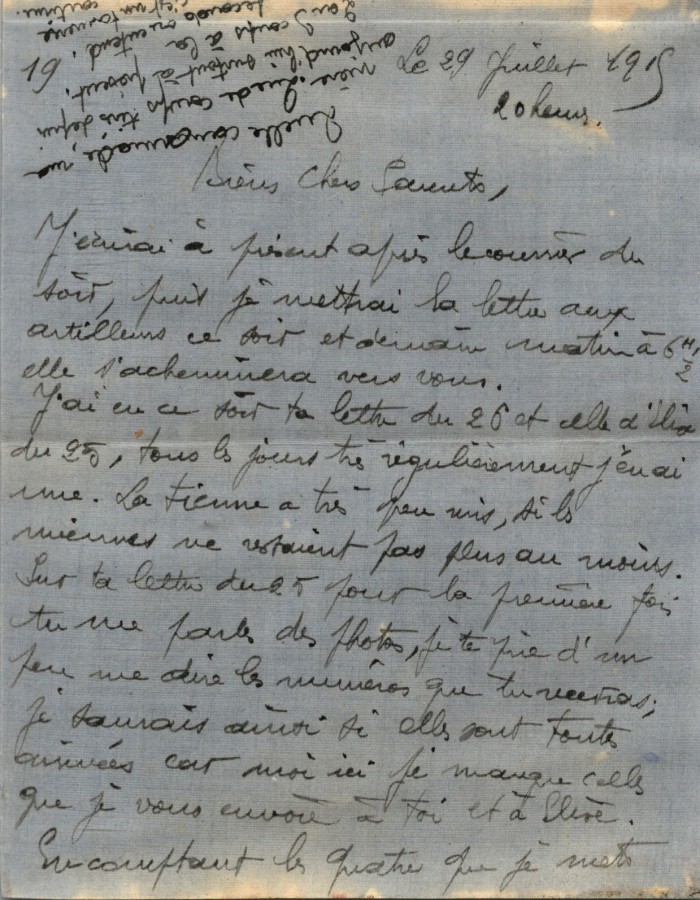 19
Le 29 Juillet 1915
20 heures.
Biens Chers Parents,
J'écrirai à présent après le courrier du
soir, puis je mettrai la lettre aux
artilleurs ce soir et demain matin à 6 H 1/2
elle s'acheminera vers vous.
J'ai eu ce soir ta lettre du 26 et celle d'Elise
du 25, tous les jours très régulièrement j'en ai
une. La tienne a très peu mis, si les
miennes ne restaient pas plus au moins.
Sur ta lettre du 25 pour la première fois
tu me parles des photos, je te prie d'un
peu me dire les numéros que tu recevras;
je saurais ainsi si elles sont toutes
arrivées car moi ici je marque celles
que je vous envoie à toi et à Elise.
En comptant les quatre que je mets
Quelle canonnade, ma
mère. Que de coups tirés depuis
aujourd'hui surtout à présent,
2 ou 3 coups à la
seconde on entend.
c'est un tonnerre
continu.